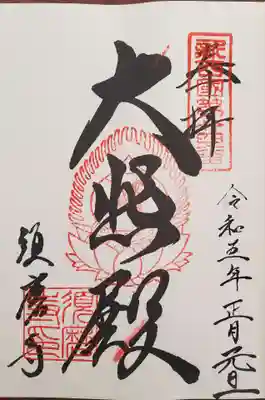 奉拝
令和五年 正月元旦
大悲殿
須磨寺